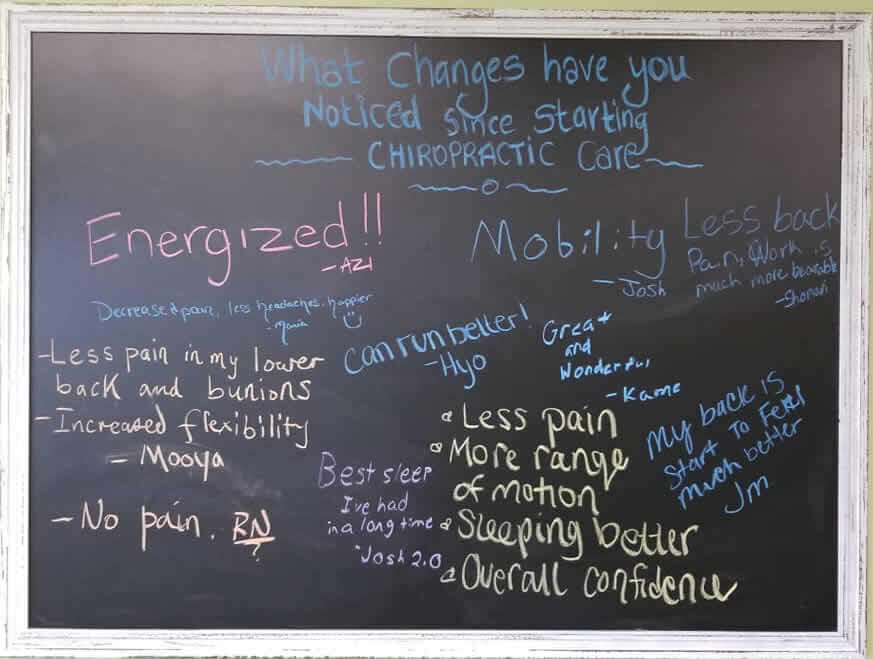 What Changes have you
Noticed since starting
CHIROPRACTIC Care
Energized!!
- AZI
Mobility
- Josh
Less back
Pain, Work is
much more bearable
Decreased pain, less headaches, happier
Can run better!
- Hyo
Great
and
Wonderful
- Kame
- Less pain in my lower
back and bunions
- Increased flexibility
- Mooya
- No pain. RN
?
Best sleep
I've had
in a long time
Josh 2.0
Less pain
More range
of motion
Sleeping better
Overall confidence
My back is
Start To Feel
much better
Jm